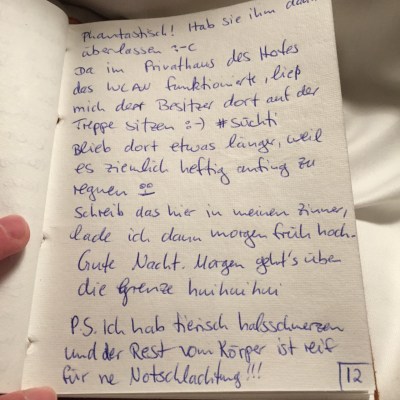 Phantastisch! Hab sie ihm dann
überlassen :-C
Da im Privathaus des Hostes
das WLAN funktionierte, ließ
mich der Besitzer dort auf der
Treppe sitzen :-) #Süchti
Blieb dort etwas länger, weil
es ziemlich heftig anfing zu
regnen
Schreib das hier in meinen Zimmer,
lade ich dann morgen früh hoch.
Gute Nacht. Morgen geht's über
die Grenze huihuihui
P.S. Ich hab tierisch halsschmerzen
und der Rest vom Körper ist reif
für ne Notschlachtung!!!
12